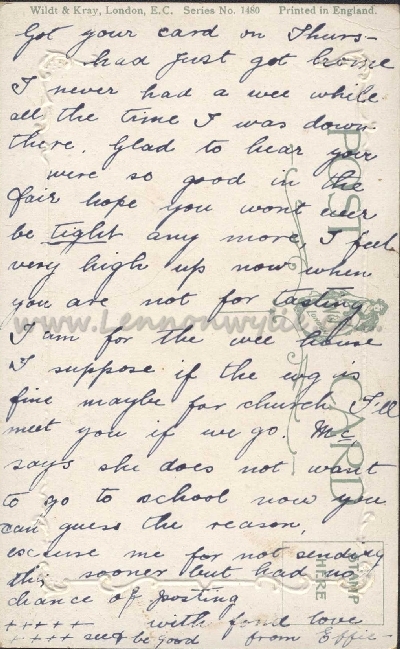 Wildt & Kray, London, E.C. Series No. 1480 Printed in England.
Got your card on Thurs-
had just got home
I never had a wee while
all the time I was down
there. Glad to hear you
were so good in the
fair hope you wont ever
be tight any more, I feel
very high up now when
you are not for tasting
I am for the wee house
I suppose if the is
fine maybe for church I'll
meet you if we go. Mc
says she does not want
to go to school now you
can guess the reason,
excuse me for not sending
this sooner but had no
chance of posting
+++++ with fond love
++++ see & be good from Effie-
POST CARD
STAMP HERE
www.Lennonwylie.co.